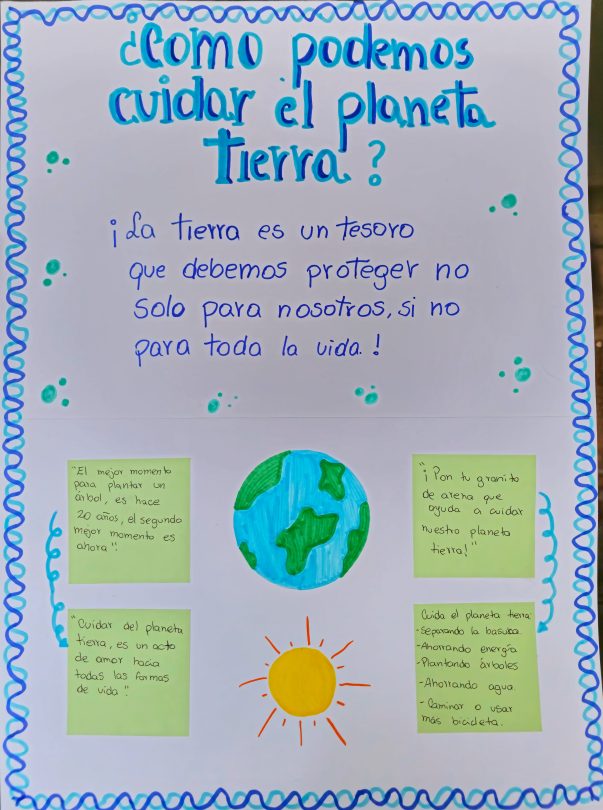 ¿Como podemos
cuidar el planeta
Tierra?
¡La tierra es un tesoro
que debemos proteger no
solo para nosotros, si no
para toda la vida.!
"El mejor momento
para plantar un
árbol, es hace
20 años, el segundo
mejor momento es
ahora".
"¡Pon tu granito
de arena que
ayuda a cuidar
nuestro planeta
tierra!"
"Cuidar del planeta
tierra, es un acto
de amor hacia
todas las formas
de vida".
Cuida el planeta tierra:
-Separando la basura.
-Ahorrando energía
-Plantando árboles
-Ahorrando agua.
-Caminar o usar
más bicicleta.